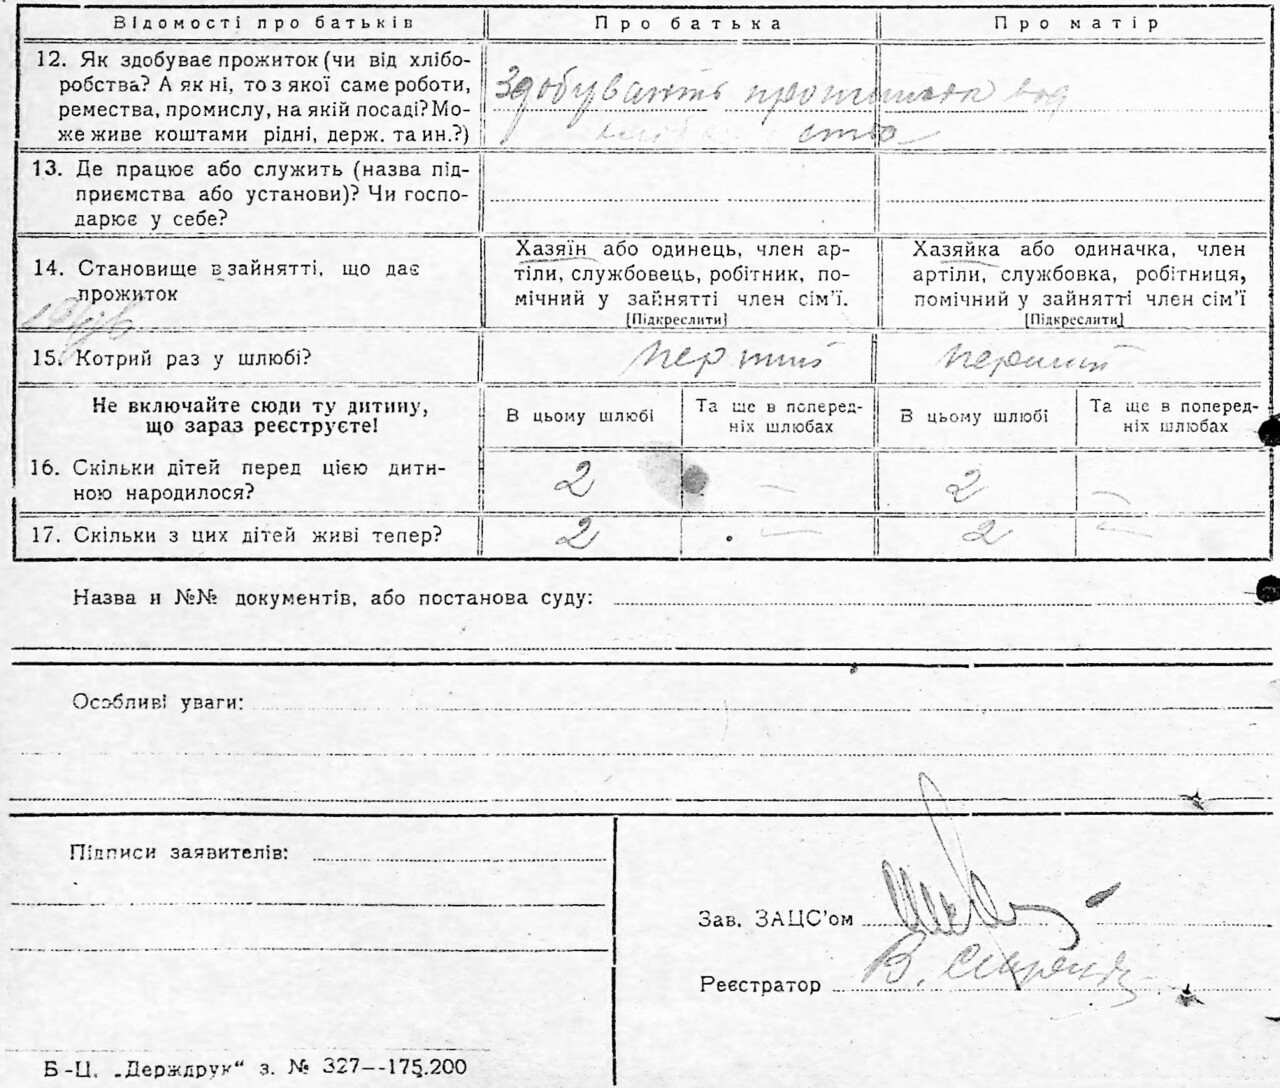 Відомості про батьків Про батька Про матір
12. Як здобуває прожиток (чи від хлібо-
робства? А як ні, то з якої саме роботи,
ремества, промислу, на якій посаді? Мо-
же живе коштами рідні, держ. та ин.?)
Здобувають прожиток від
ство
13. Де працює або служить (назва під-
приємства або установи)? Чи госпо-
дарює у себе?
14. Становище в зайнятті, що дає
прожиток
Хазяїн або одинець, член ар-
тіли, службовець, робітник, по-
мічний у зайнятті член сім'ї.
[Підкреслити]
Хазяйка або одиначка, член
артіли, службовка, робітниця,
помічний у зайнятті член сім'ї
[Підкреслити]
15. Котрий раз у шлюбі? перший перший
Не включайте сюди ту дитину,
що зараз реєструєте!
В цьому шлюбі
Та ще в поперед-
ніх шлюбах
В цьому шлюбі
Та ще в поперед-
ніх шлюбах
16. Скільки дітей перед цією дити-
ною народилося?
2 — 2 —
17. Скільки з цих дітей живі тепер? 2 — 2 —
Назва и №№ документів, або постанова суду:
Особливі уваги:
Підписи заявителів:
Зав. ЗАЦС'ом
Реєстратор В.
Б-Ц. „Держдрук“ з. № 327--175.200